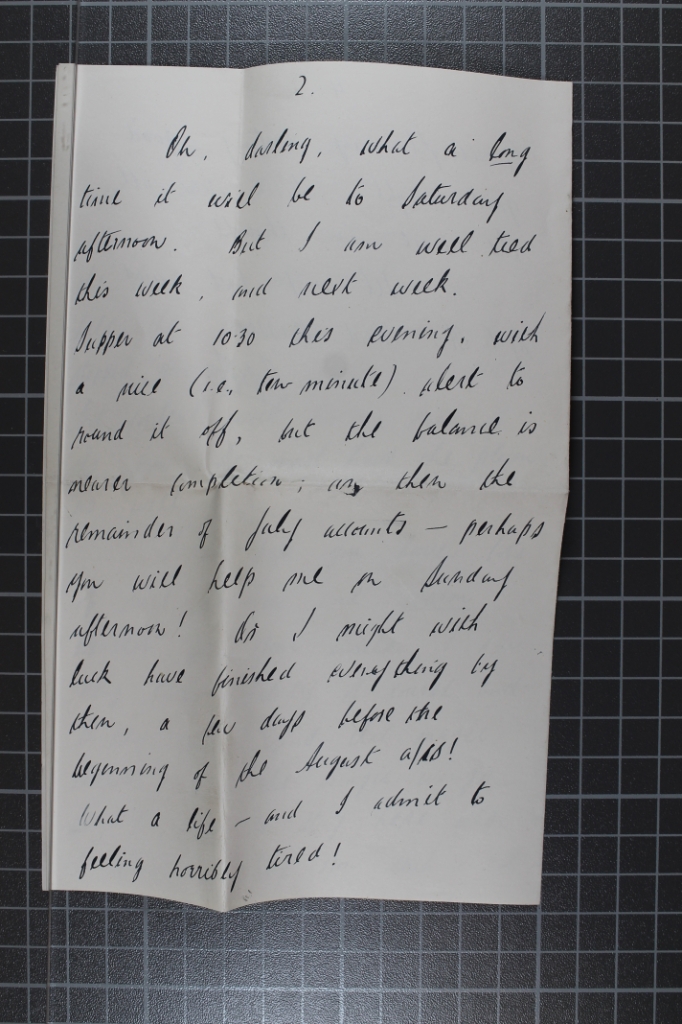 2.
Oh, darling, what a long
time it will be to Saturday
afternoon. But I am well tied
this week, and next week.
Supper at 10.30 this evening, with
a nice (i.e., ten minute) alert to
round it off, but the balance is
nearer completion; then the
remainder of July accounts – perhaps
you will help me on Sunday
afternoon! Or I might with
luck have finished everything by
then, a few days before the
beginning of the August a/cs!
What a life – and I admit to
feeling horribly tired!